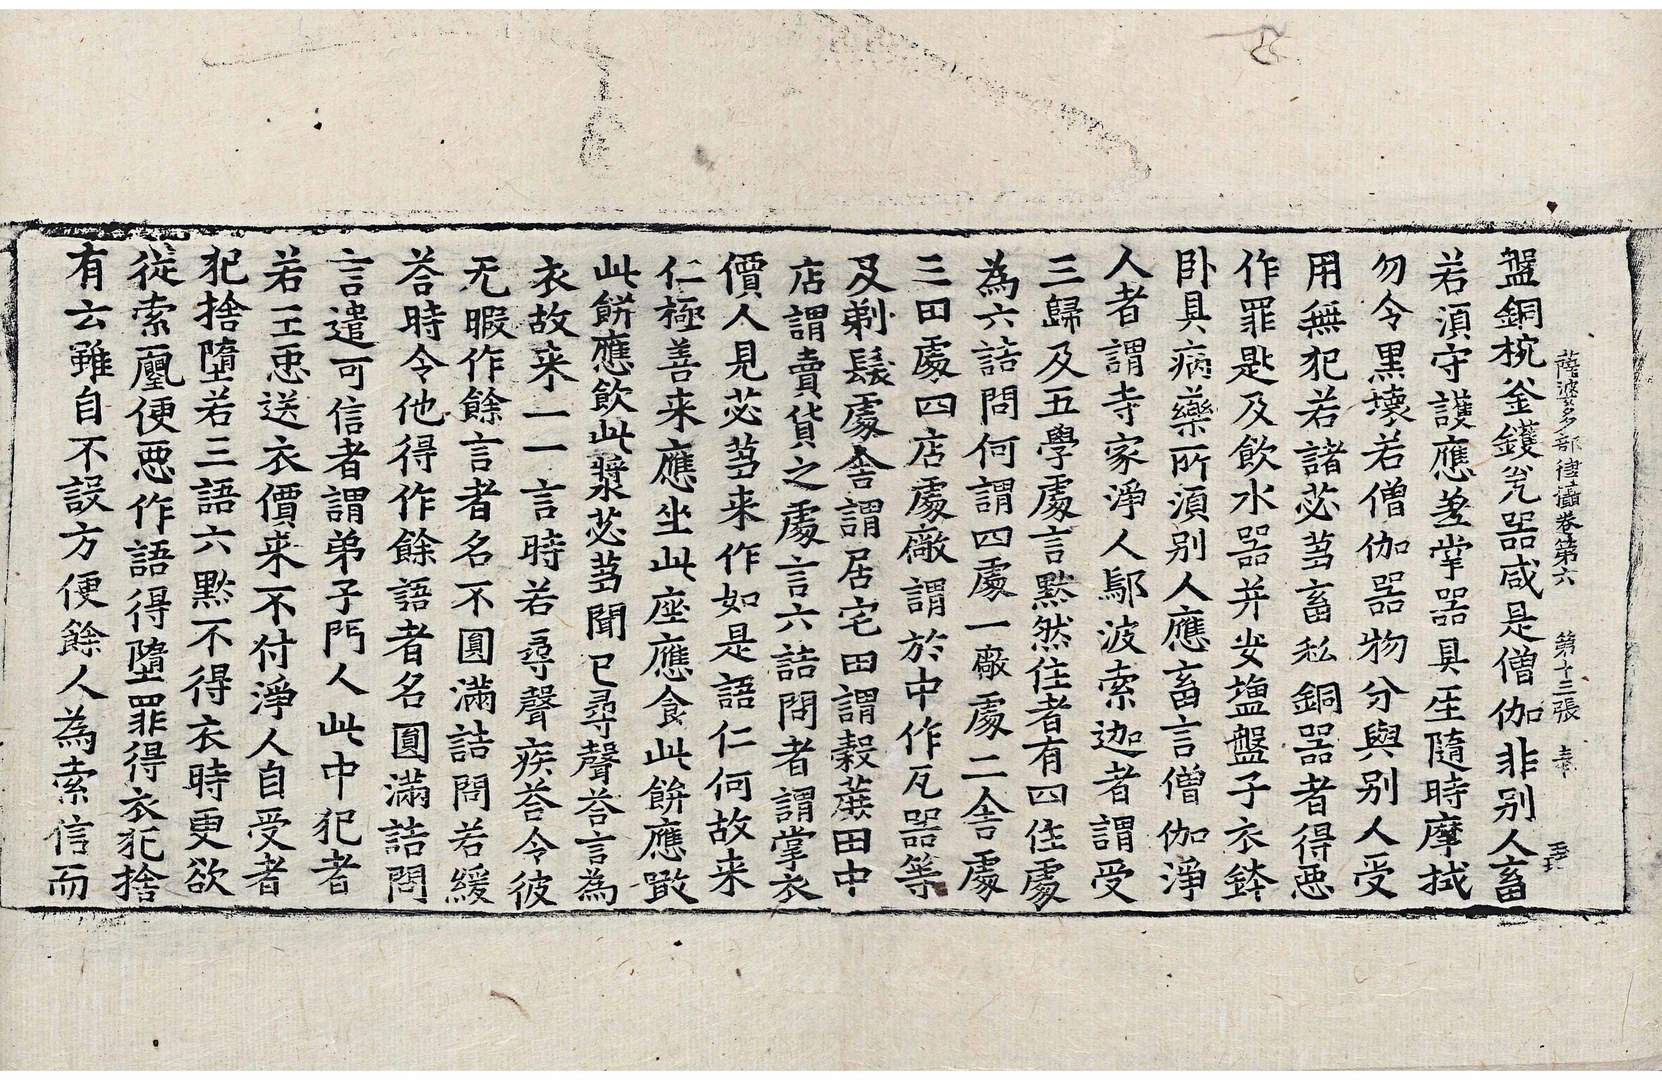 薩婆多部律攝卷第六 第十三張
盤銅椀釜鑊瓮器咸是僧伽非别人畜
若湏守護應差掌器具主隨時摩拭
勿令黑壞若僧伽器物分與别人受
用無犯若諸苾芻畜私銅器者得惡
作罪匙及飲水器并安塩盤子衣鉢
卧具病藥所湏别人應畜言僧伽淨
人者謂寺家淨人鄔波索迦者謂受
三歸及五學處言默然住者有四住處
為六詰問何謂四處一廠處二舎處
三田處四店處廠謂於中作瓦器等
及剃髮處舎謂居宅田謂穀蔗田中
店謂賣貨之處言六詰問者謂掌衣
價人見苾芻来作如是語仁何故来
仁極善来應坐此座應食此餅應噉
此餅應飲此漿苾芻聞已尋聲荅言為
衣故来一一言時若尋聲疾荅令彼
无暇作餘言者名不圓滿詰問若緩
荅時令他得作餘語者名圓滿詰問
言遣可信者謂弟子門人此中犯者
若王臣送衣價来不付淨人自受者
犯捨墮若三語六默不得衣時更欲
従索𡩋便惡作語得墮罪得衣犯捨
有云雖自不設方便餘人為索信而